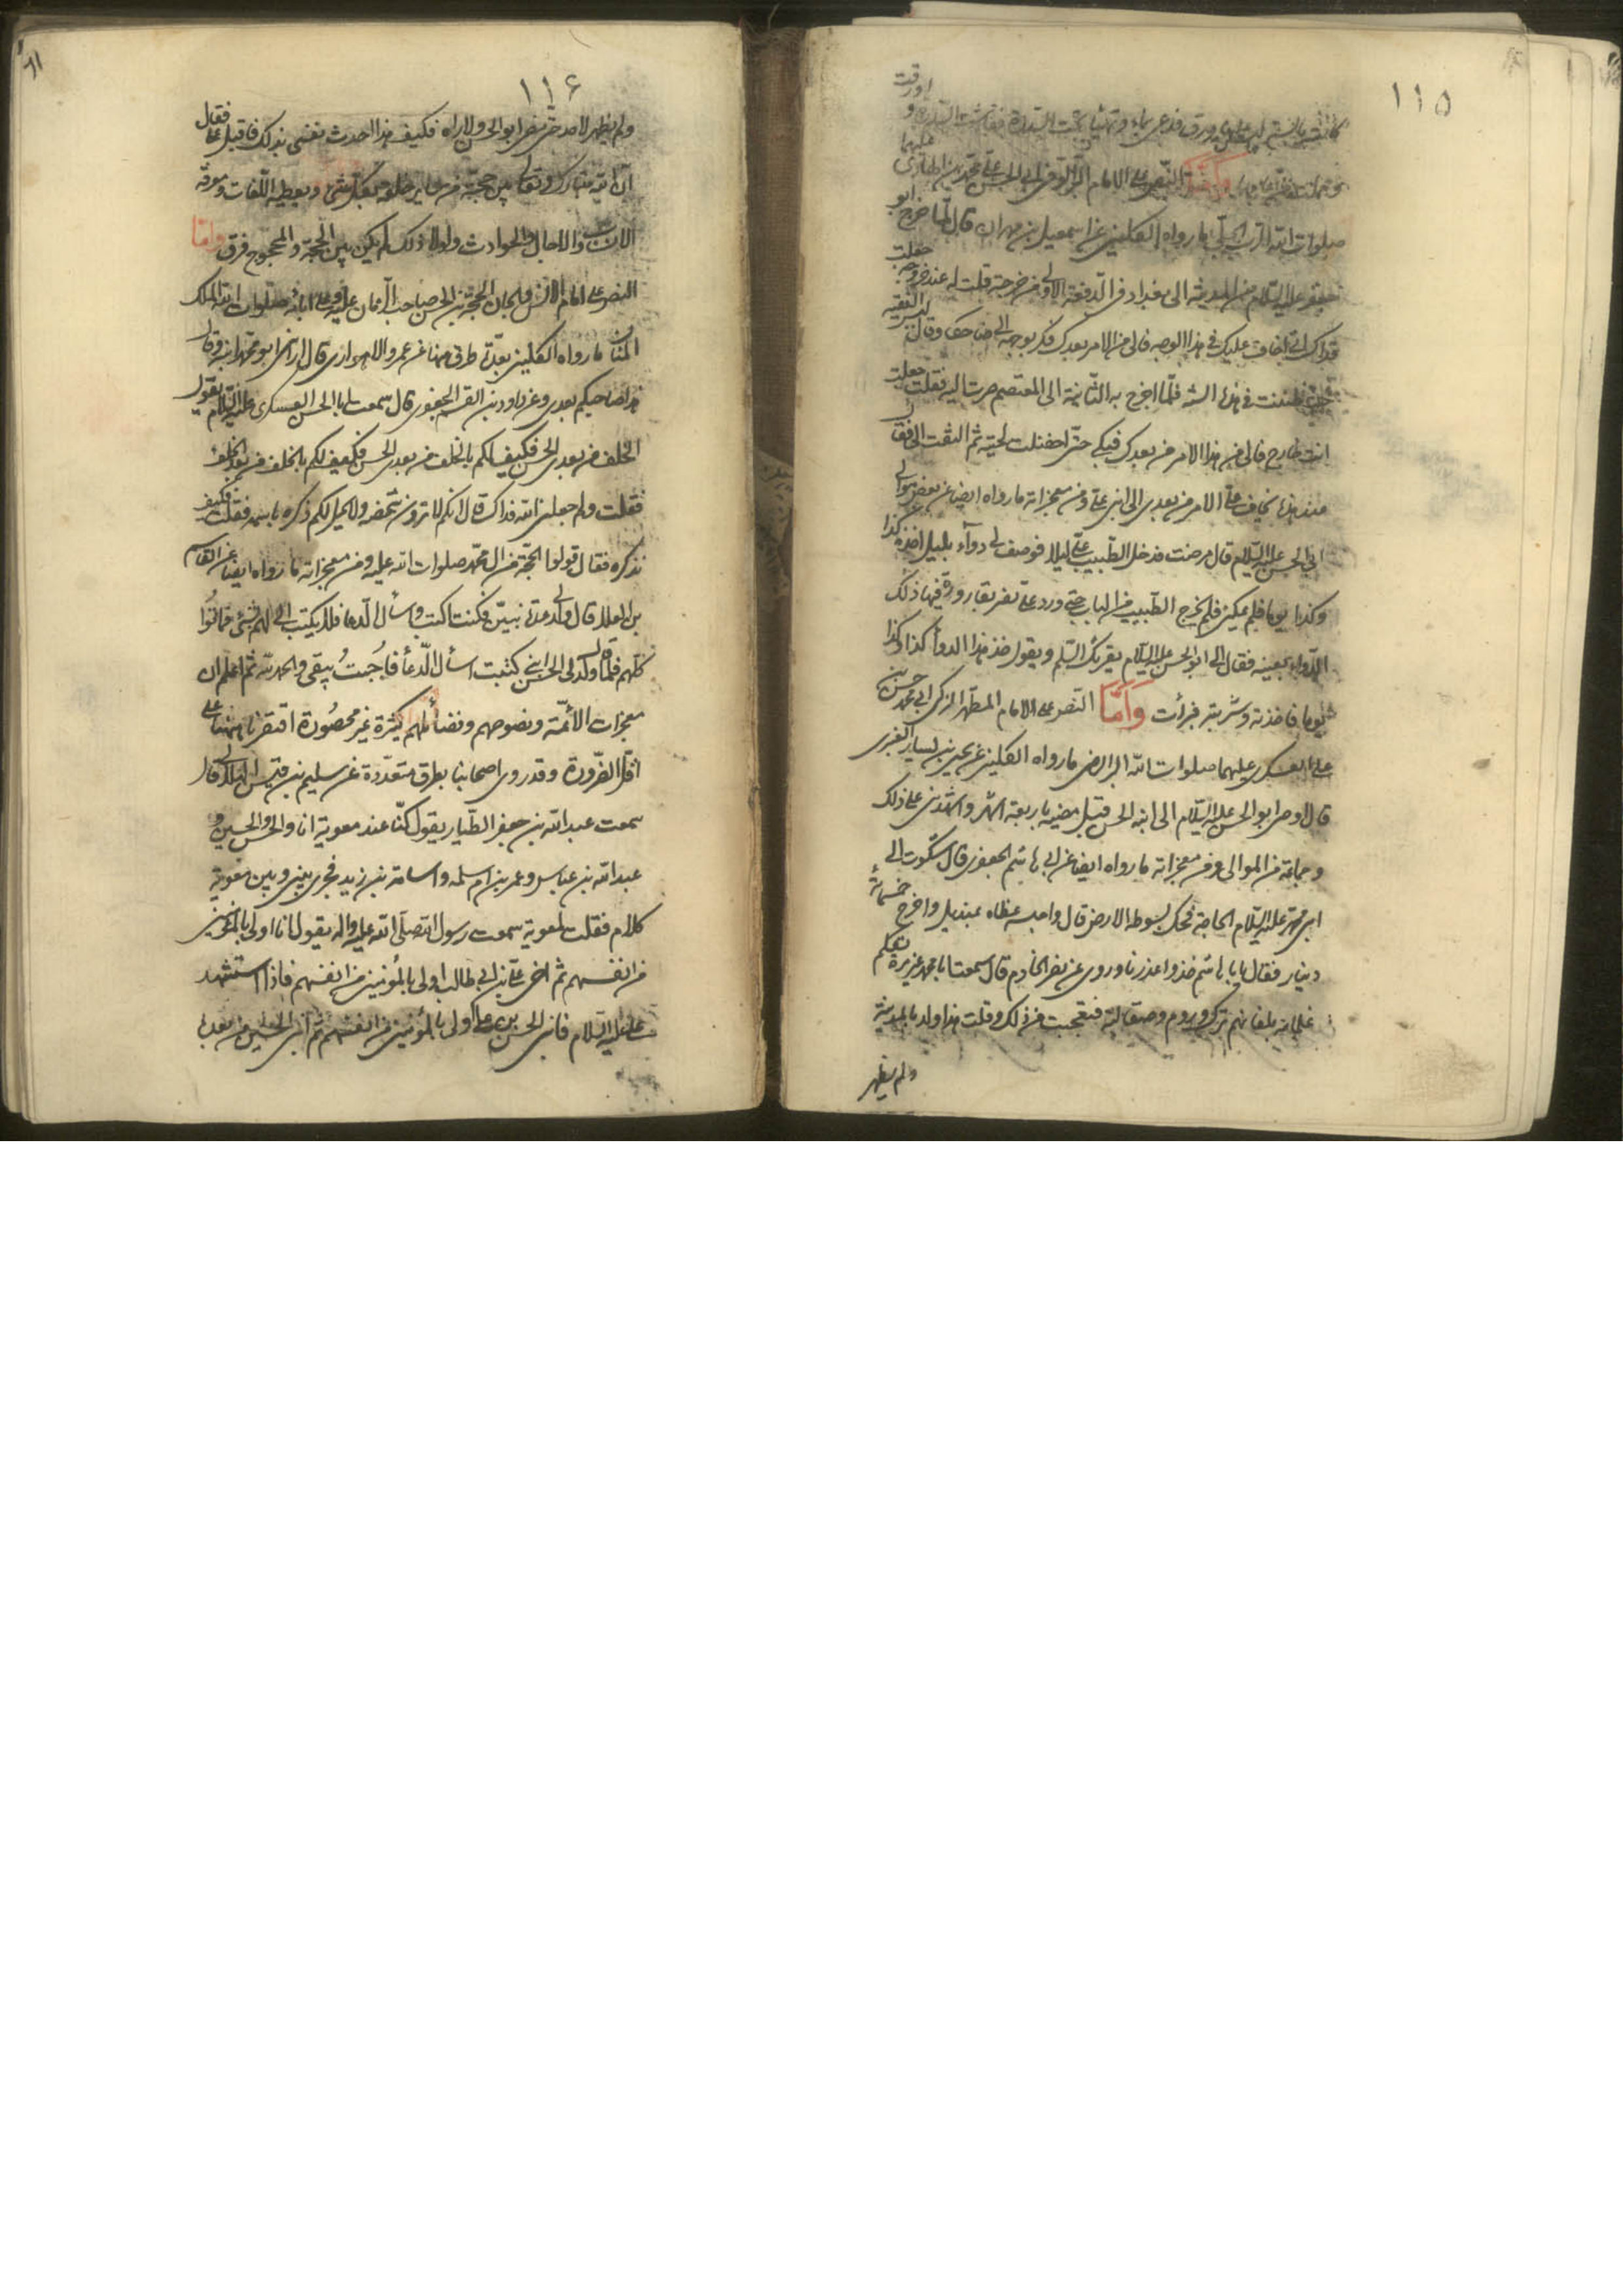 ١١٥
كانت يابسة ليس عليها ورق فدعى بماء وتهيأ تحت السدرة فعاشت السدرة و اورقت
وحملت من عامها وامّا النصّ على الامام التقي ابي الحسن علي بن محمد الهادي عليهما
صلوات الله الملك العلي ما رواه الكليني عن اسمعيل بن مهران قال لمّا خرج ابو
جعفر عليه السّلام من المدينة الى بغداد في الدّفعة الاولى من خرجته قلت له عند خروجه جعلت
فداك انّي اخاف عليك في هذا الوجه فالى من الامر بعدك فكر بوجهه الي ضاحكا وقال ليس الغيبة
حيث ظننت في هذه السنة فلمّا اخرج به الثّانية الى المعتصم صرت اليه فقلت جعلت
انت خارج فالى من هذا الامر من بعدك فبكى حتّى اخضلت لحيته ثم التفت الي فقال
عند هذه يخاف عليّ الامر من بعدي الى ابني عليّ ومن معجزاته ما رواه ايضا عن بعض موالي
ابي الحسن عليه السّلام قال مرضت فدخل الطّبيب عليّ ليلا فوصف لي دوآء بليل اخذه كذا
وكذا يوما فلم يمكنّي فلم يخرج الطّبيب من الباب حتى ورد عليّ نصر بقارورة فيها ذلك
الدّواء بعينه فقال لي ابو الحسن عليه السّلام يقرئك السّلم ويقول خذ هذا الدوآء كذا وكذا
يوما فاخذته وشربته فبرأت وَامَّا النّص على الامام المطهّر الزكي ابي محمد حسن بن
علي العسكري عليهما صلوات الله ما رواه الكليني عن يحيى بن يسار القنبري
قال اوصى ابو الحسن عليه السّلام الى ابنه الحسن قبل مضيه باربعة اشهر واشهدني على ذلك
وجماعة من الموالى ومن معجزاته ما رواه ايضا عن ابي هاشم الجعفري قال شكوت الى
ابي محمّد عليه السّلام الحاجة فحك بسوطه الارض قال واحسبه غطاه بمنديل واخرج خمسمائة
دينار فقال يا ابا هاشم خذ واعذرنا وروى عن نصر الخادم قال سمعت ابا محمد غير مرة يكلم
غلمانه بلغاتهم ترك وروم وصقالبة فتعجبت من ذلك وقلت هذا ولد بالمدينة
ولم يظهر
١١۶
ولم يظهر لاحد حتى مضى ابو الحسن ولا راه فكيف هذا احدث نفسي بذلك فاقبل عليّ فقال
انّ الله تبارك وتعالى بيّن حجّته من ساير خلقه بكل شئ ويعطيه اللّغات ومعرفة
الانساب والاجال والحوادث ولولا ذلك لم يكن بين الحجّة والمحجوج فرق وامّا
النصّ على امام الانس والجان الحجّة بن الحسن صاحب الزّمان عليه وعلى ابائه صلوات الله الملك
المنّان ما رواه الكليني بعدّة طرق منها عن عمرو الاهوازي قال اراني ابو محمّد ابنه وقال
هذا صاحبكم بعدي وعن داود بن القسم الجعفري قال سمعت ابا الحسن العسكري عليه السّلام يقول
الخلف من بعدي الحسن فكيف لكم بالخلف من بعدي الحسن فكيف لكم بالخلف من بعد الخلف
فقلت ولم جعلني الله فداك قال انكم لا ترون شخصه ولا يحل لكم ذكره باسمه فقلت فكيف
نذكره فقال قولوا الحجّة من ال محمّد صلوات الله عليه ومن معجزاته ما رواه ايضا عن القاسم
بن العلا قال ولد لي عدة بنين فكنت اكتب واسأل الدّعا فلا يكتب الي لهم بشئ فماتوا
كلّهم فلمّا ولد لي الحسن ابني كتبت اسأل الدّعأ فاُجبتُ يبقى والحمد لله ثم اعلم ان
معجزات الأئمّة ونصوصهم وفضائلهم كثيرة غير محصُورة اقتصرنا ههنا على
اقلّ الضّرورة وقد روى اصحابنا بطرق متعدّدة عن سليم بن قيس الهلالي قال
سمعت عبد الله بن جعفر الطّيار يقول كنّا عند معوية انا والحسن والحسين و
عبد الله بن عباس وعمر بن ام سلمه واسامة بن زيد فجرى بيني وبين معوية
كلام فقلت لمعوية سمعت رسول الله صلّى الله عليه واله يقول انا اولى بالمؤمنين
من انفسهم ثم اخي عليّ بن ابي طالب اولى بالمُؤمنين من انفسهم فاذا استشهد
علي عليه السّلام فابني الحسن بن علي اولى بالمؤمنين من انفسهم ثمّ ابني الحسين من بعده